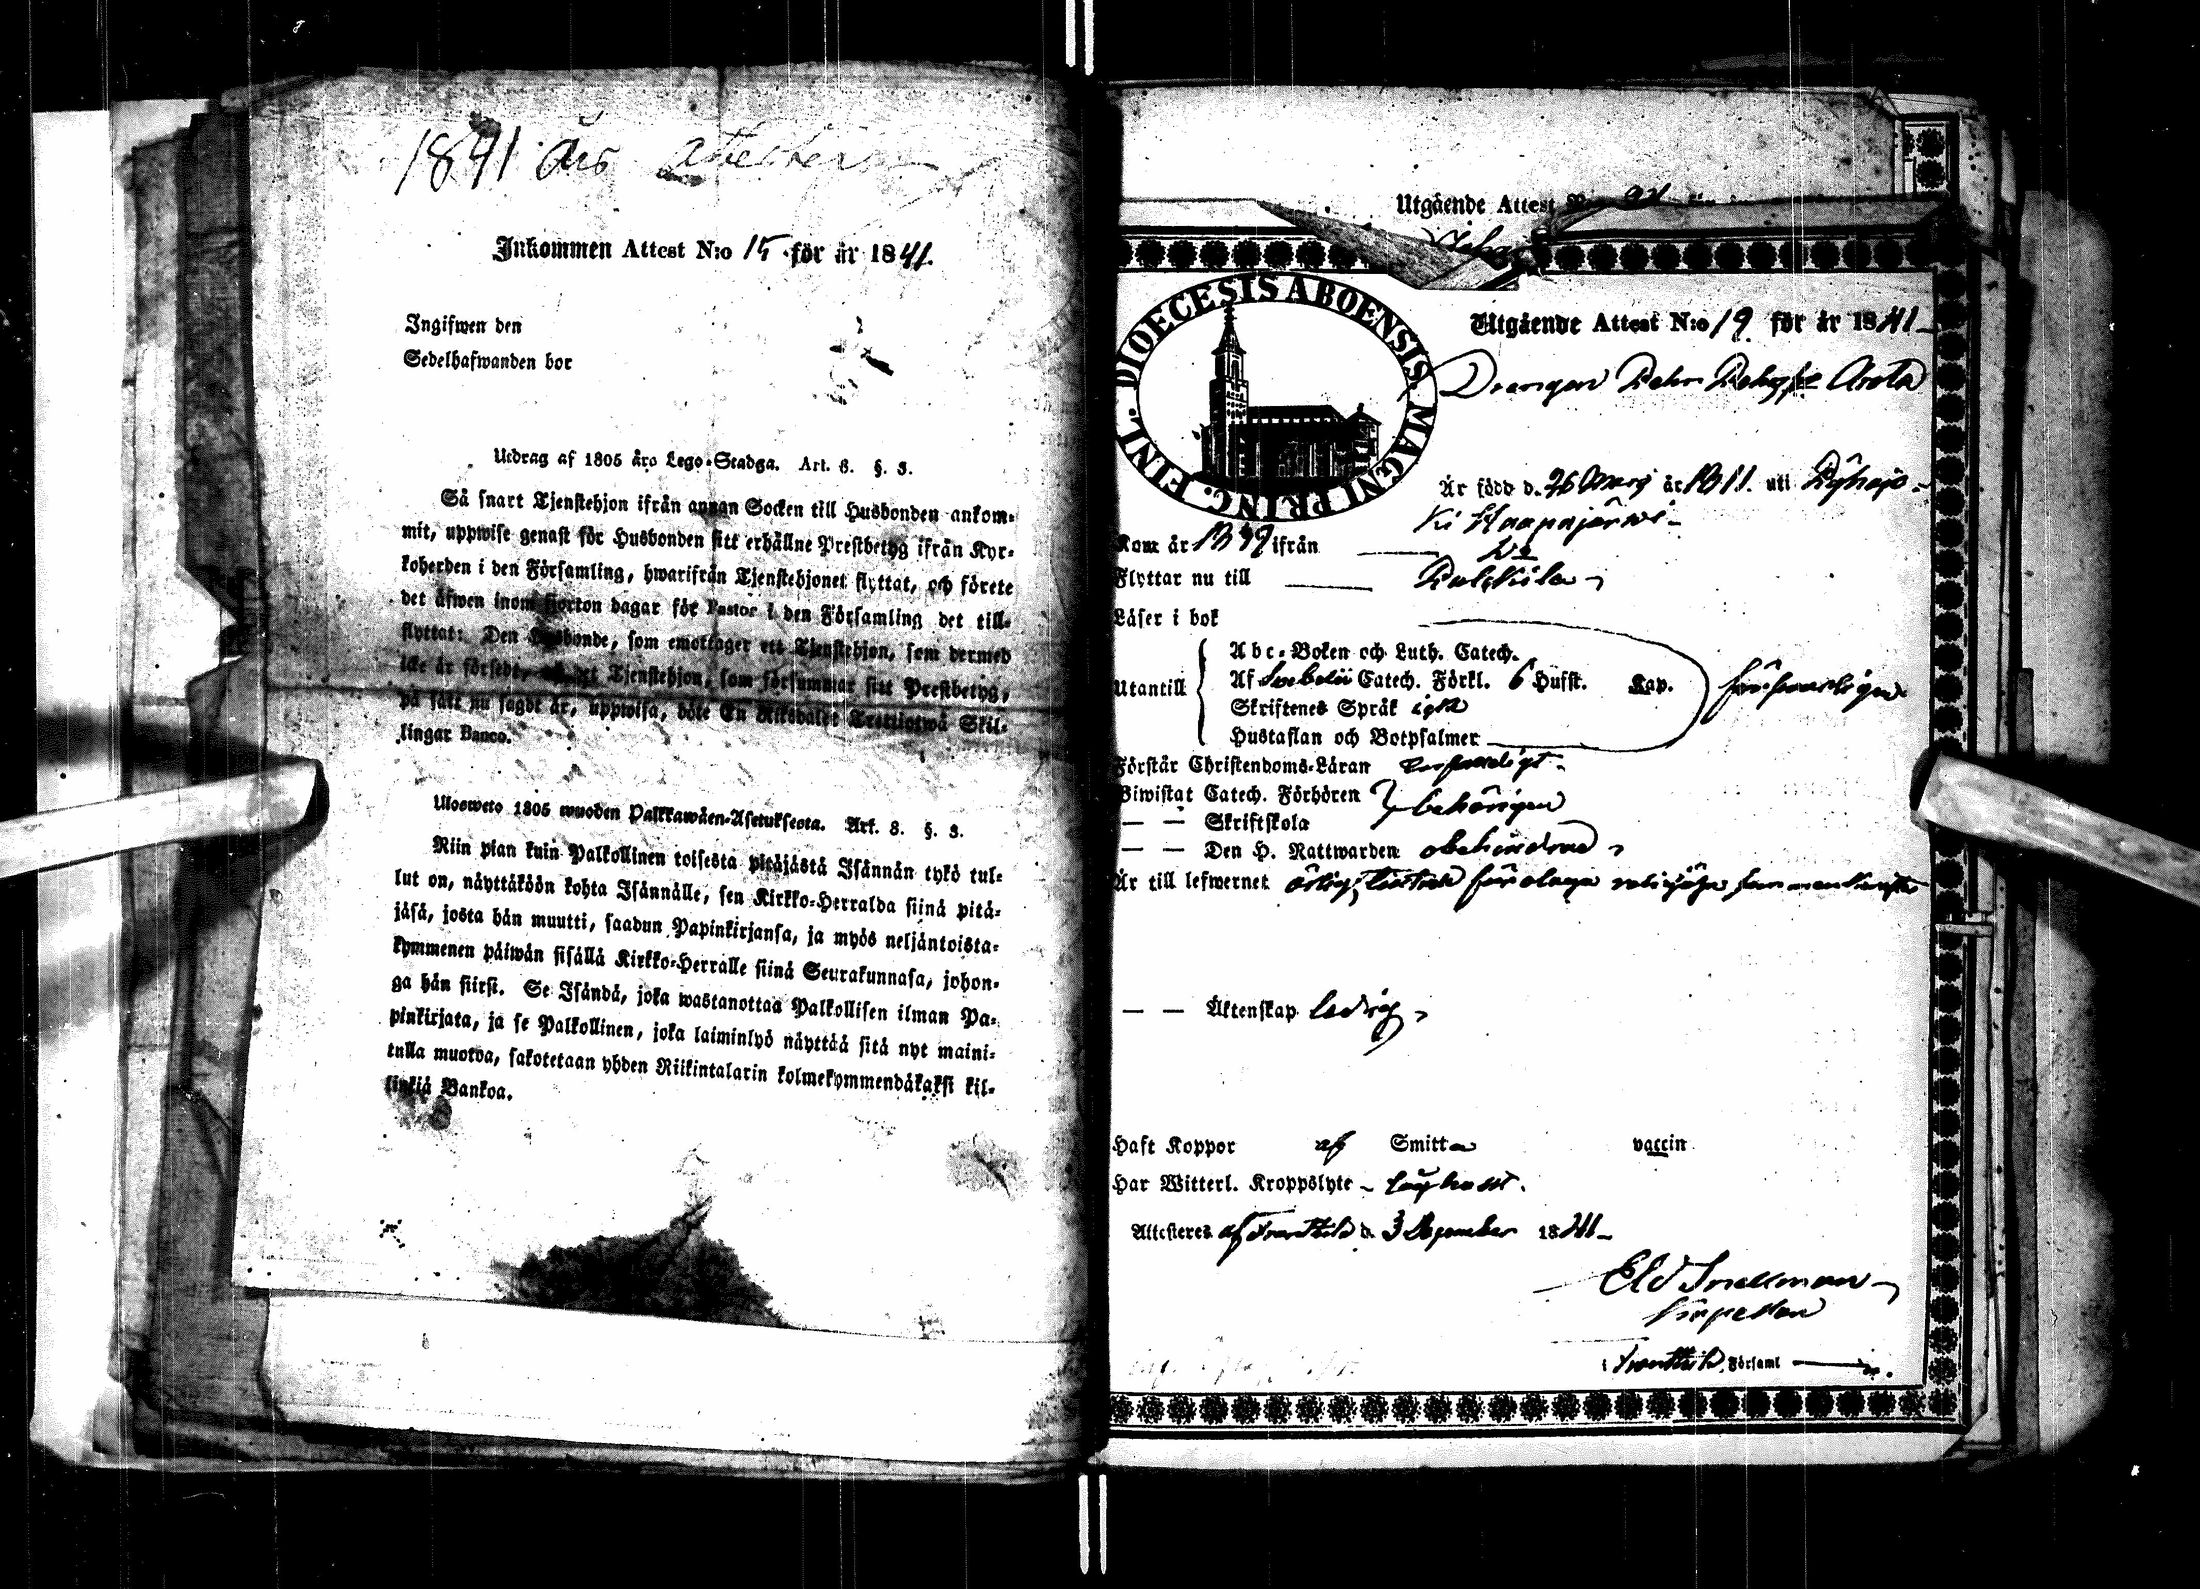 1841 års attester
Inkommen Attest N:o 15 för år 1841.
Ingifwen den
Sedelhafwanden bor
Utdrag af 1805 års Lego-Stadga. Art. 8. §. 3.
Så snart Tjenstehjon ifrån annan Socken till Husbonden ankom-
mit, uppwise genast för Husbonden sitt erhållne Prestbetyg ifrån Kyr-
koherden i den Församling, hwarifrån Tjenstehjonet flyttat, och förete
det äfwen inom fjorton dagar för Pastor i den Församling det till-
flyttat: Den Husbonde, som emottager ett Tjenstehjon, som dermed
icke är försedt, och det Tjenstehjon, som försummar sitt Prestbetyg,
på sätt nu sagdt är, uppwisa, böte En Riksdaler Trettiotwå Skil-
lingar Banco.
Ulosweto 1805 wuoden Palkkawäen-Asetuksesta. Art. 8. §. 3.
Niin pian kuin Palkollinen toisesta pitäjästä Isännän tykö tul-
lut on, näyttäköön kohta Isännälle, sen Kirkko-Herralda siinä pitä-
jäsä, josta hän muutti, saadun Papinkirjansa, ja myös neljäntoista-
kymmenen päiwän sisällä Kirkko-Herralle siinä Seurakunnasa, johon-
ga hän siirsi. Se Isändä, joka wastanottaa Palkollisen ilman Pa-
pinkirjata, ja se Palkollinen, joka laiminlyö näyttää sitä nyt maini-
tulla muotoa, sakotetaan yhden Riikintalarin kolmekymmendäkaksi kil-
linkiä Bankoa.
Utgående Attest
DIOECESIS ABOENSIS MAGNI PRINC. FINL.
Utgående Attest N:o 19 för år 1841
Drengen Arola
Är född d. 26 år 1811. uti Pyhäjo-
ki Haapajärwi
Kom år ifrån Do
Flyttar nu till Pulkkila
Läser i bok
Utantill
Abc-Boken och Luth. Catech.
Af Svebelii Catech. Förkl. 6 Hufst. Kap. försvarligen
Skriftenes Språk
Hustaflan och Botpsalmer
Förstår Christendoms-Läran försvarligt
Biwistat Catech. Förhören behörigen
— — Skriftskola
— — Den H. Nattwarden obehindrad
Är till lefwernet ärlig,
— — Äktenskap ledig
Haft Koppor af Smitta vaccin
Har Witterl. Kroppslyte
Attesteres af Frantsila d. 3 December 1841
El Snellman
Kapellan
i Frantsila Församl